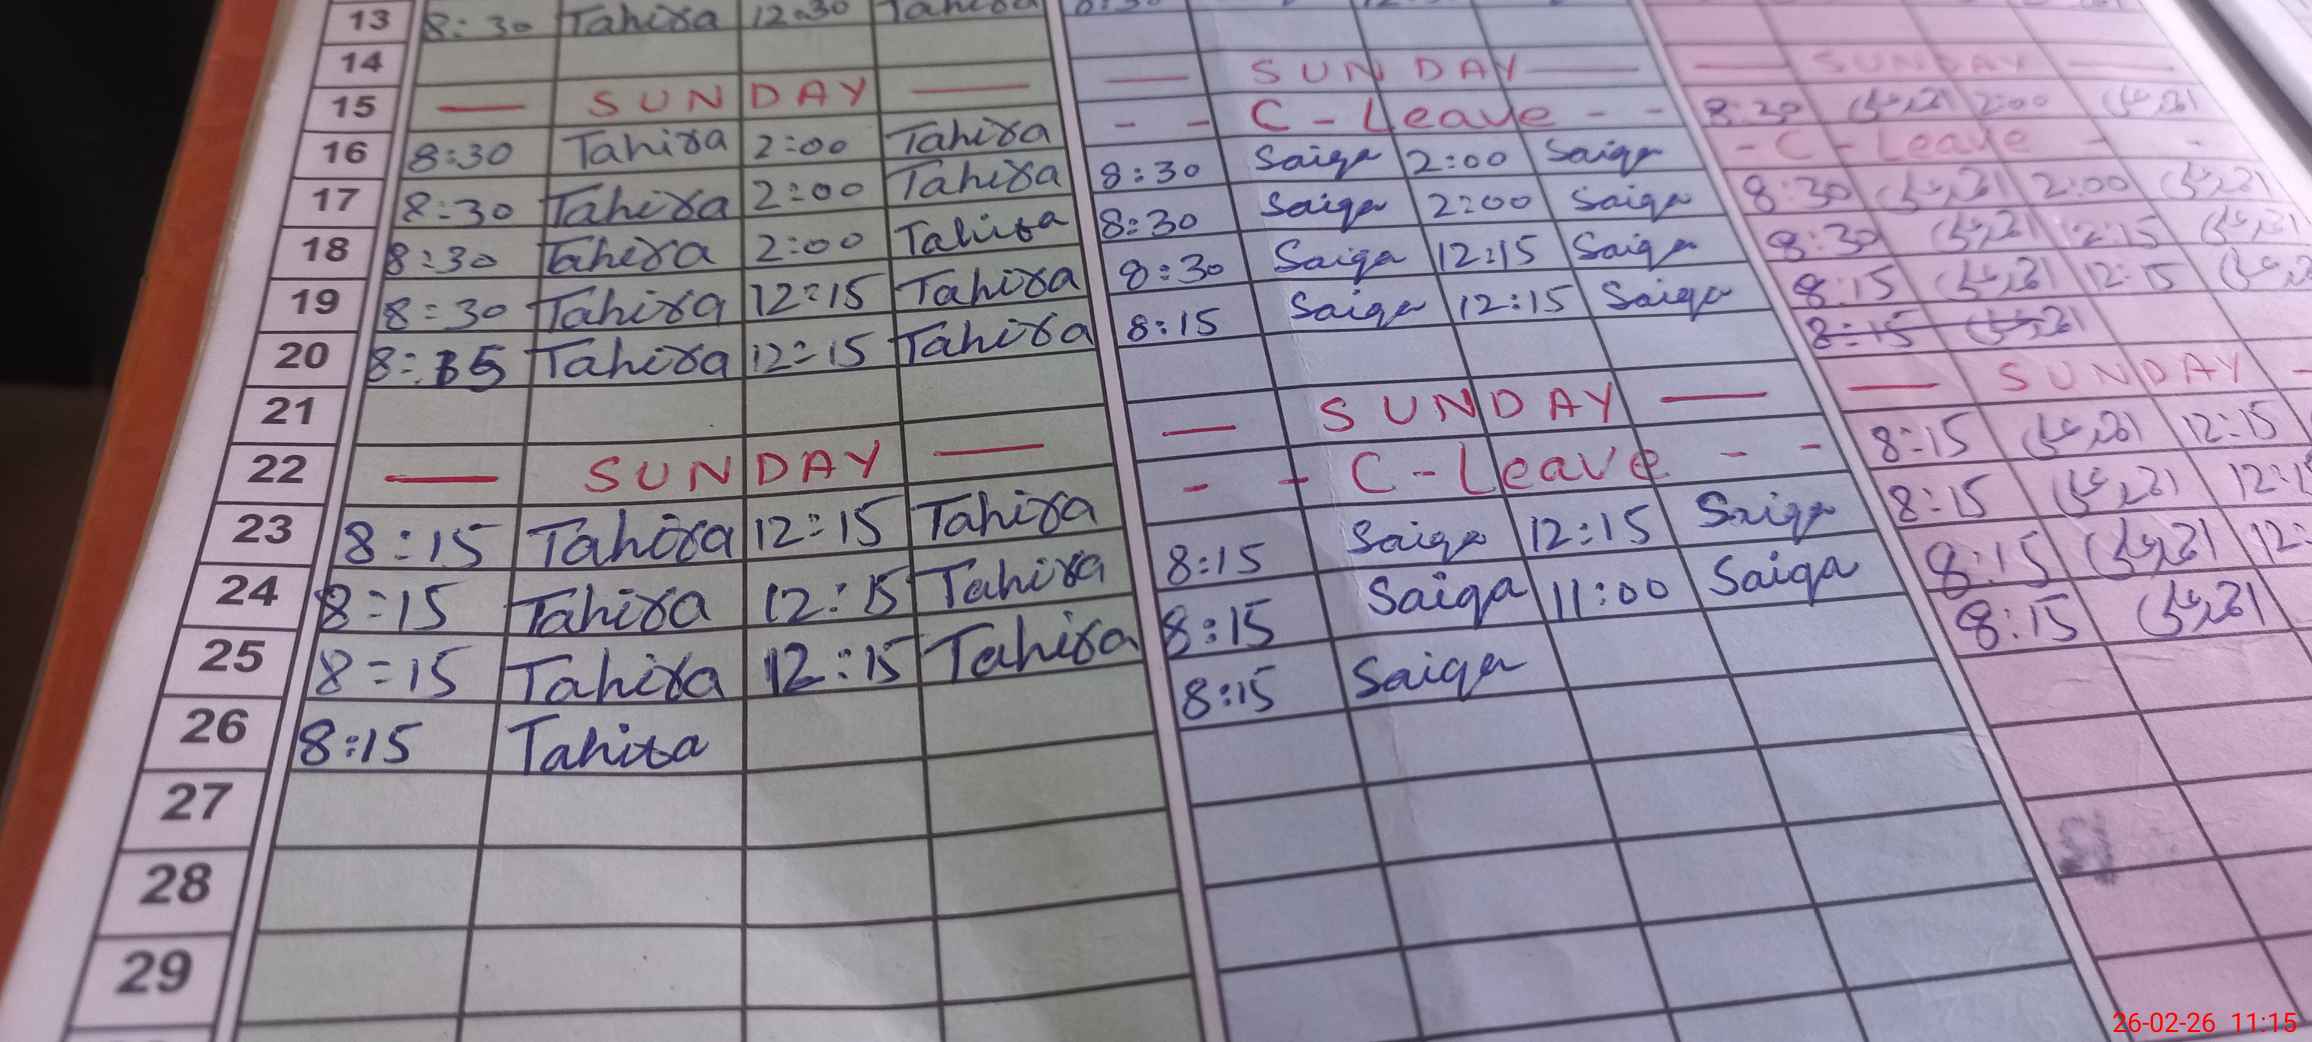 13 8:30 Tahira 12:30 Tahira
14 — SUNDAY — — SUNDAY —
15 — SUNDAY — - - C-Leave - - 8:30 2:00
16 8:30 Tahira 2:00 Tahira 8:30 Saiqa 2:00 Saiqa - C-Leave - -
17 8:30 Tahira 2:00 Tahira 8:30 Saiqa 2:00 Saiqa 8:30 2:00
18 8:30 Tahira 2:00 Tahira 8:30 Saiqa 12:15 Saiqa 8:30 12:15
19 8:30 Tahira 12:15 Tahira 8:15 Saiqa 12:15 Saiqa 8:15 12:15
20 8:15 Tahira 12:15 Tahira 8:15
21 — SUNDAY — — SUNDAY -
22 — SUNDAY — - - C-Leave - - 8:15 12:15
23 8:15 Tahira 12:15 Tahira 8:15 Saiqa 12:15 Saiqa 8:15
24 8:15 Tahira 12:15 Tahira 8:15 Saiqa 11:00 Saiqa 8:15
25 8:15 Tahira 12:15 Tahira 8:15 Saiqa 8:15
26 8:15 Tahira
27
28
29
26-02-26 11:15